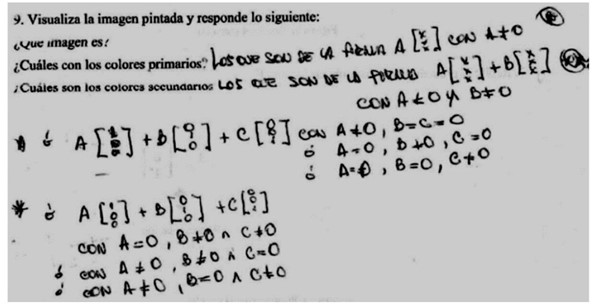 9. Visualiza la imagen pintada y responde lo siguiente:
¿Que imagen es?
¿Cuáles con los colores primarios? LOS QUE SON DE LA FORMA A [ ] CON A≠0
¿Cuáles son los colores secundarios LOS QUE SON DE LA FORMA A[ ] + B[ ]
CON A≠0 Y B≠0
* ó A [1 0 0] + B [0 1 0] + C [0 0 1] CON A≠0, B=C=0
ó A=0, B≠0, C=0
ó A=0, B=0, C≠0
* ó A [1 0 0] + B [0 1 0] + C [0 0 1]
CON A=0, B≠0 ∧ C≠0
ó CON A≠0, B≠0 ∧ C=0
ó CON A≠0, B=0 ∧ C≠0